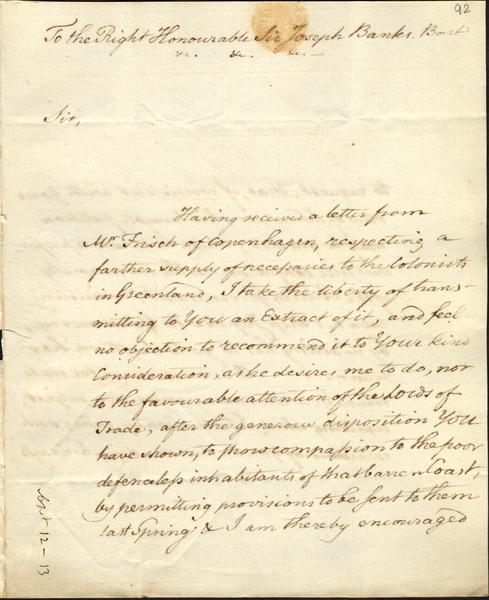 92
To the Right Honourable Sir Joseph Banks. Bart
&c. &c. &c. —
Sir,
Having received a letter from
Mr. Frisch of Copenhagen, respecting a
farther supply of necessaries to the Colonists
in Greenland, I take the liberty of trans-
mitting to You an Extract of it, and feel
no objection to recommend it to Your kind
Consideration, as he desires me to do, nor
to the favourable attention of the Lords of
Trade, after the generous disposition You
have shown, to show compassion to the poor
defenceless inhabitants of that barren Coast,
by permitting provisions to be sent to them
last Spring; & I am thereby encouraged
12-13